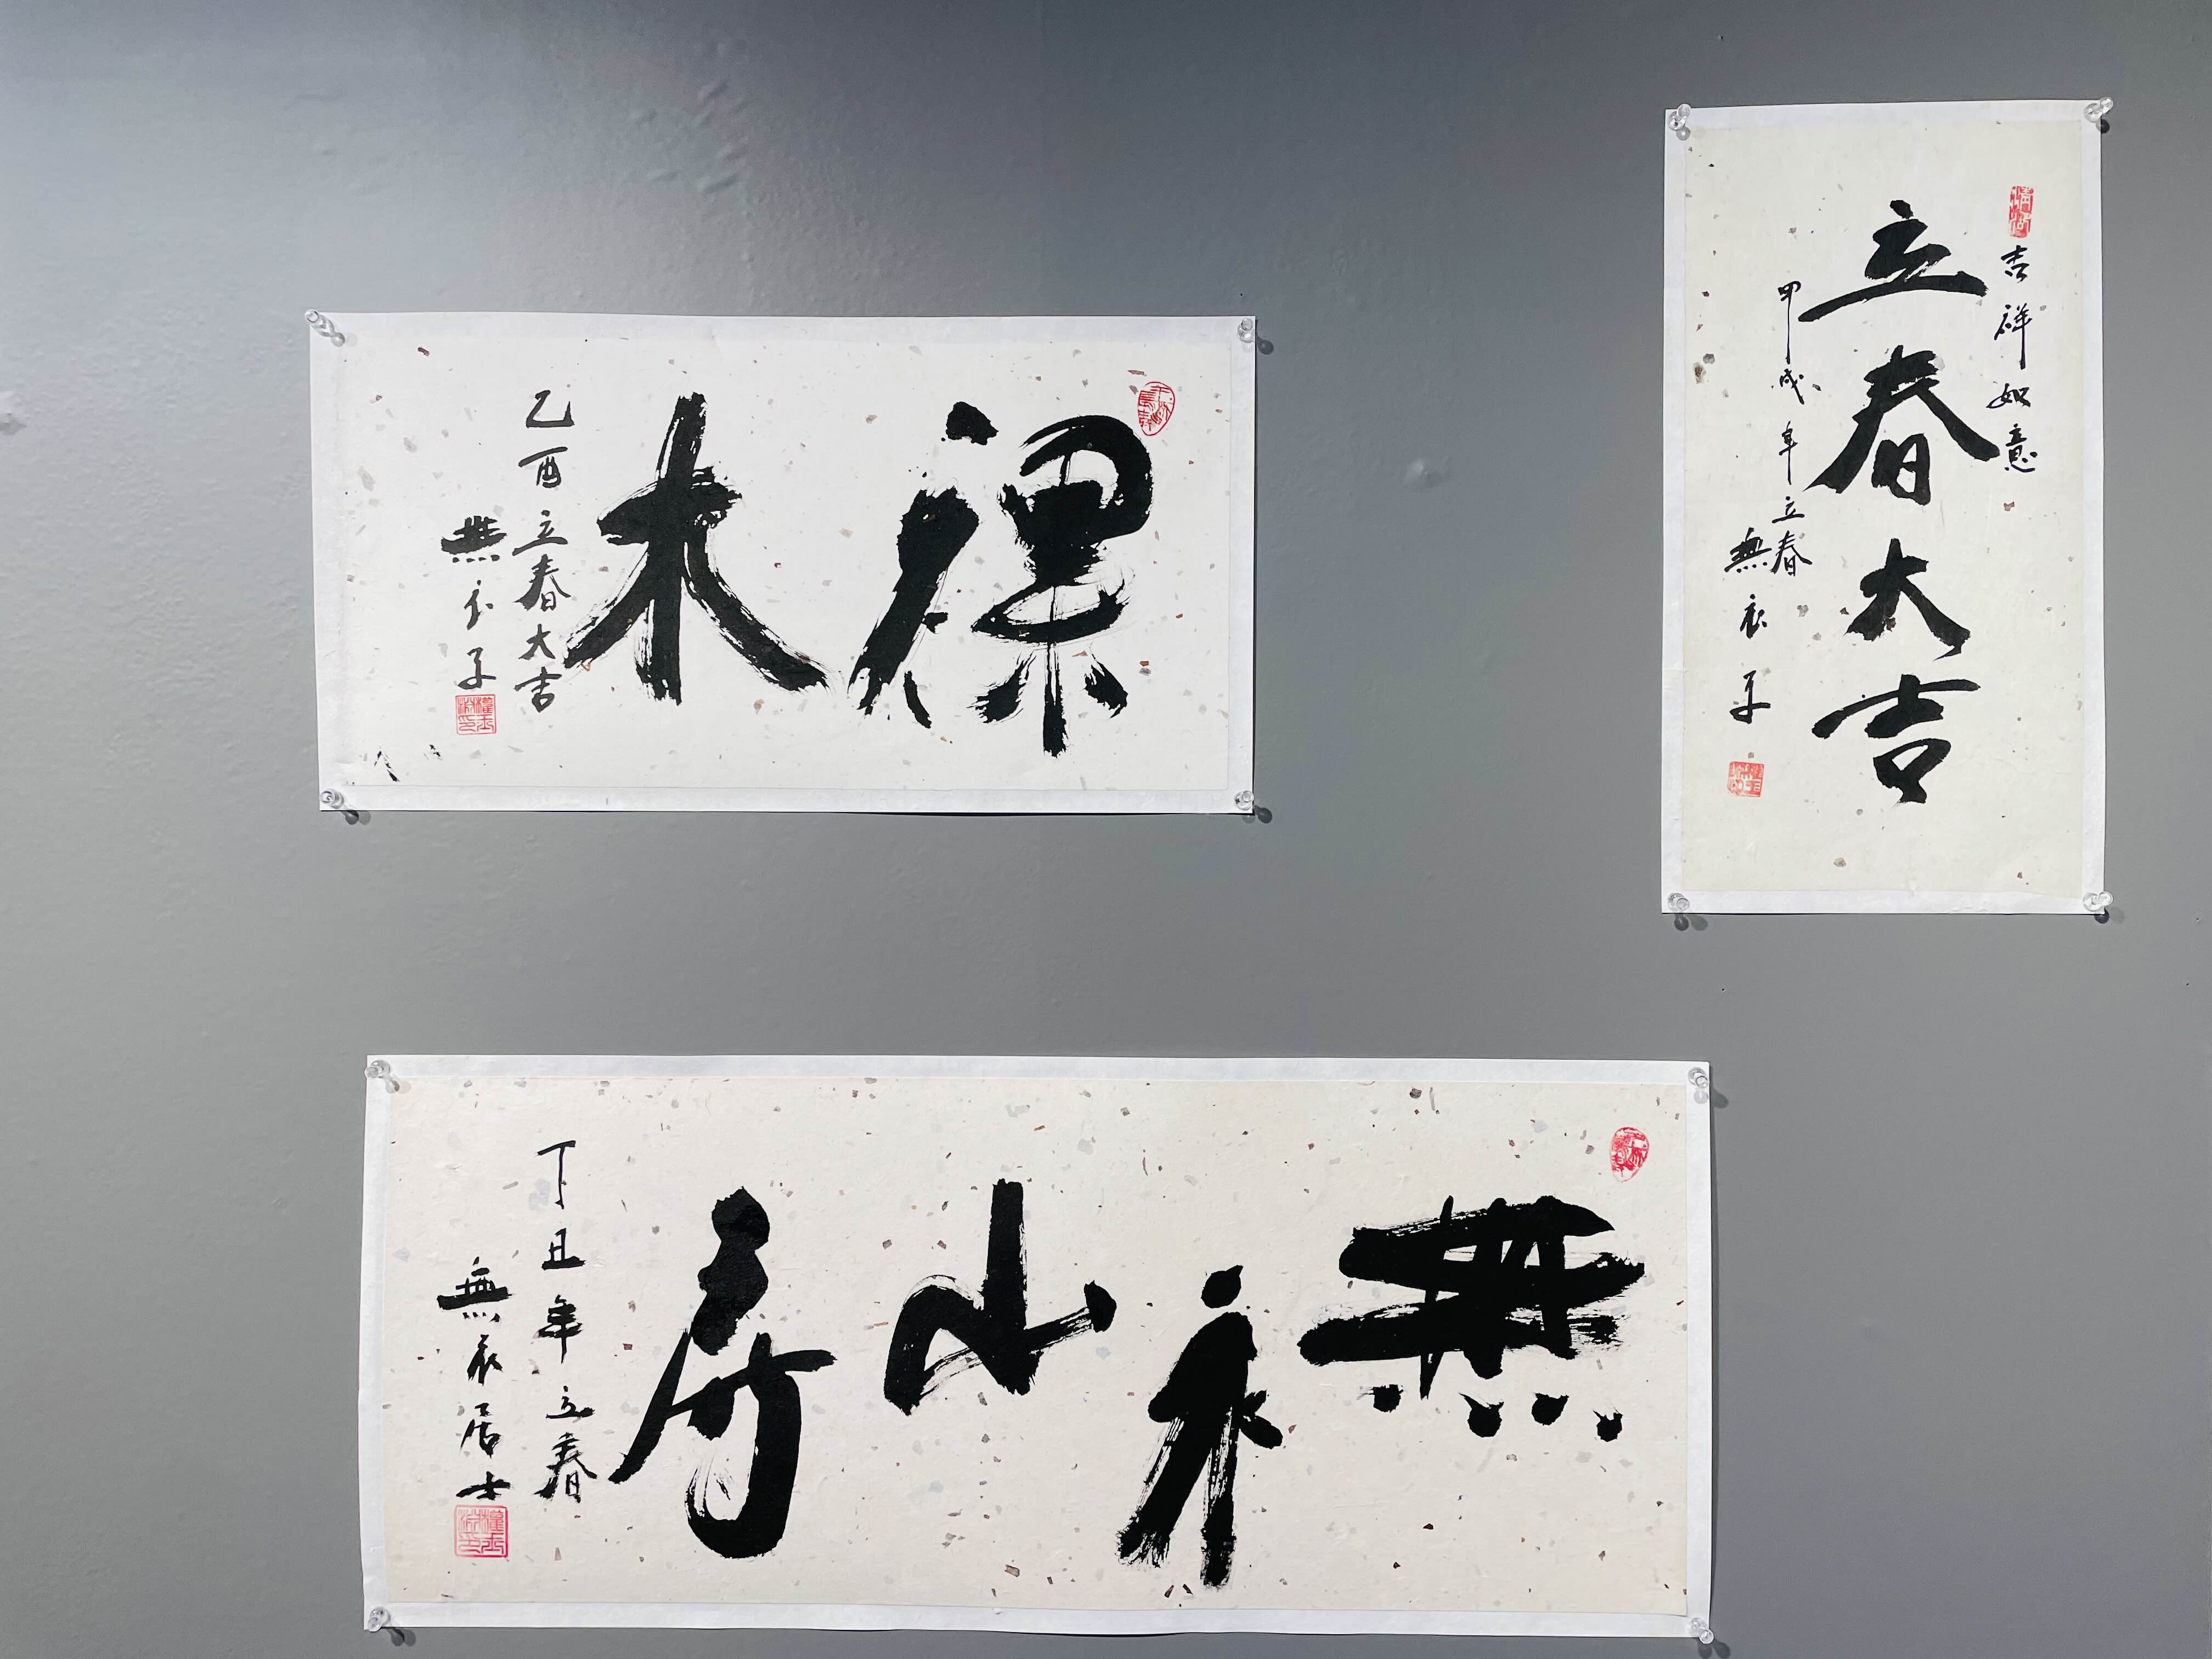 裸木
乙酉立春大吉
無衣子
吉祥如意
立春大吉
甲戌年立春
無衣子
無衣山房
丁丑年立春
無衣居士